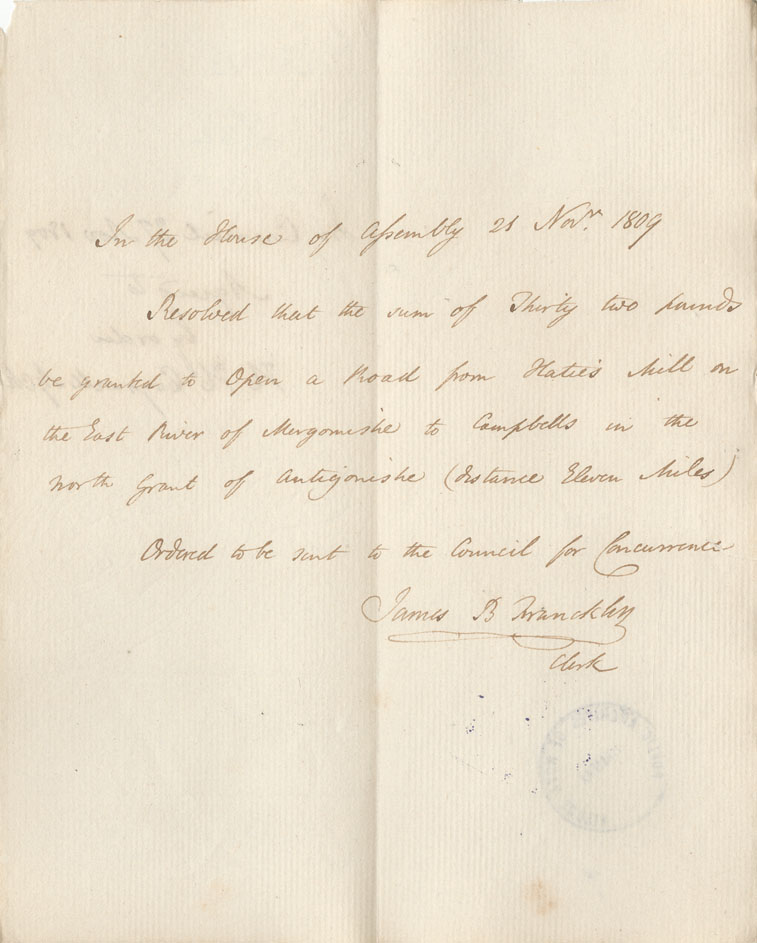 In the House of Assembly 21 Novr. 1809
Resolved that the sum of Thirty two pounds
be granted to Open a Road from Hattie's Mill on
the East River of Merigomishe to Campbells in the
North Grant of Antigonishe (distance Eleven Miles)
Ordered to be sent to the Council for Concurrence
James B Francklin
Clerk